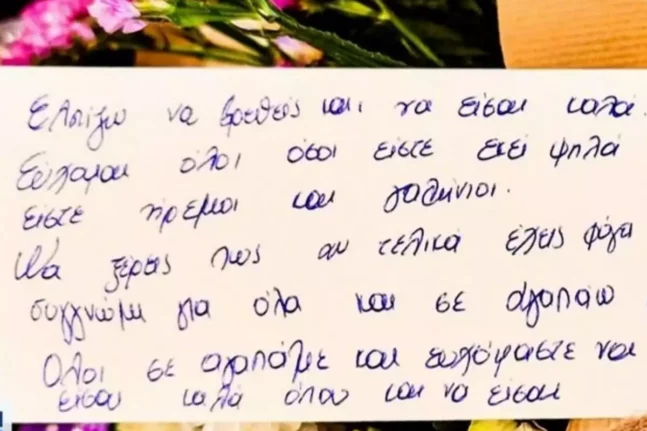 Ελπίζω να βρεθείς και να είσαι καλά.
Εύχομαι όλοι όσοι είστε εκεί ψηλά
είστε ήρεμοι και γαλήνιοι.
Να ξέρεις πως αν τελικά έχεις φύγει
συγγνώμη για όλα και σε αγαπάω
Όλοι σε αγαπάμε και ευχόμαστε να
είσαι καλά όπου και να είσαι